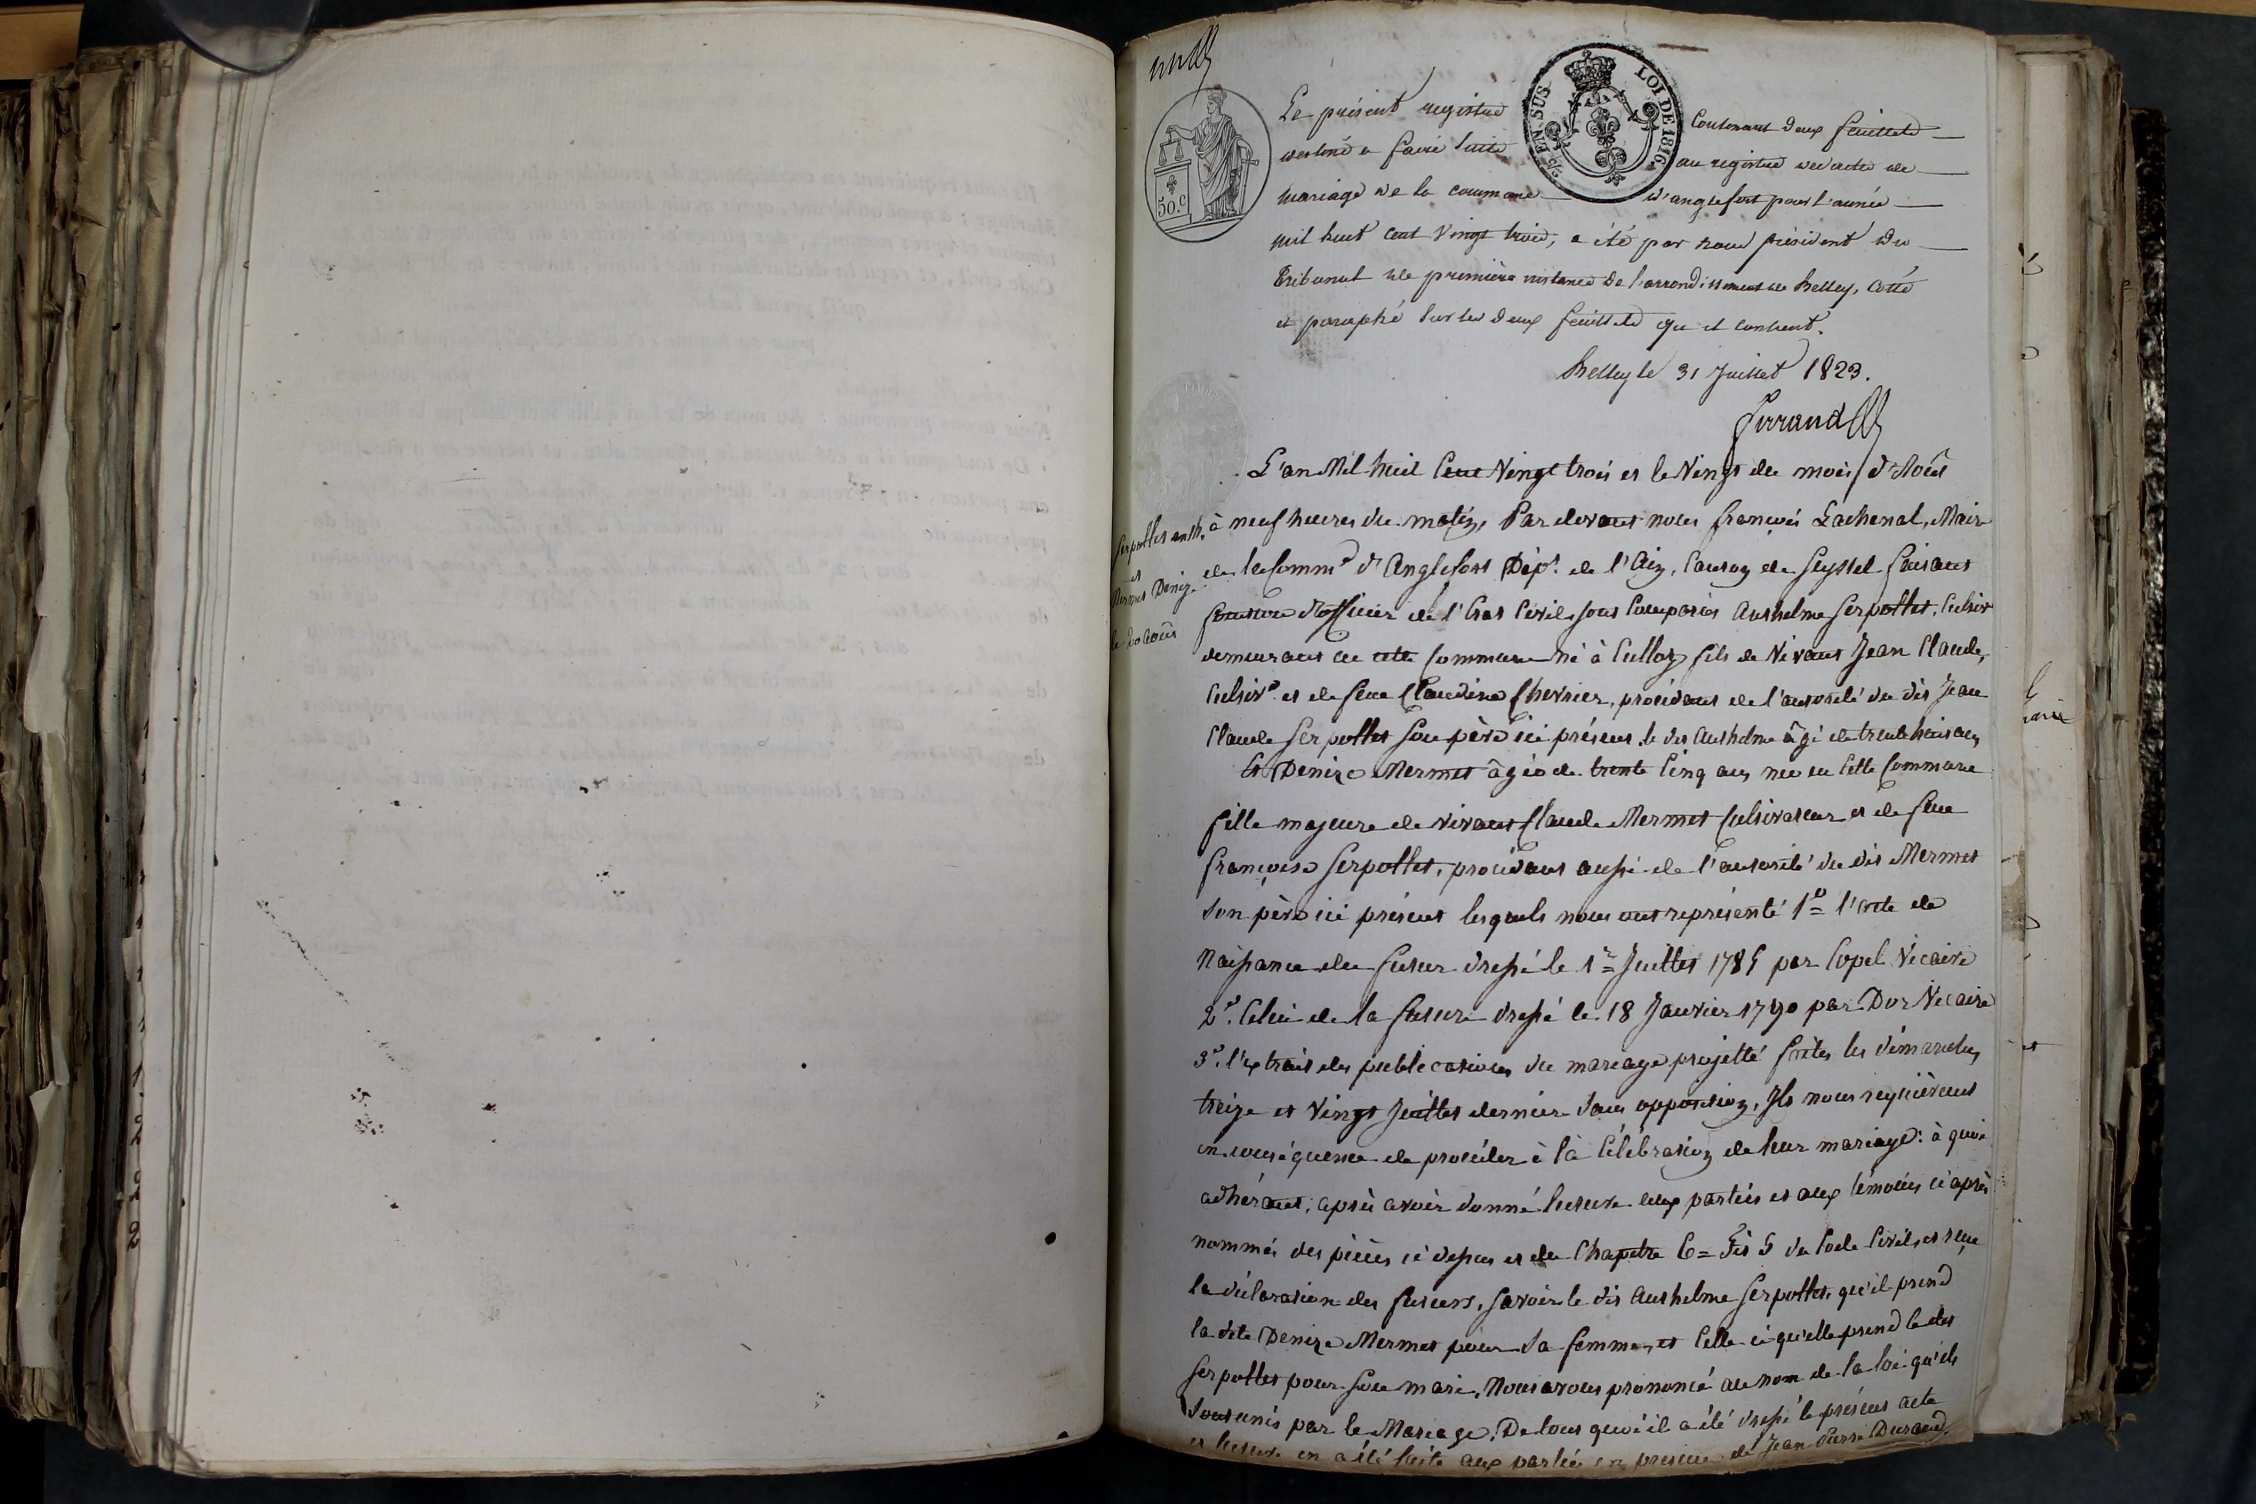 Le présent registre contenant deux feuillets
destiné a faire suite au registre des actes de
mariage de la commune d'anglefort pour l'année
mil huit cent vingt trois, a été par nous président du
Tribunal de première instance de l'arrondissement de Belley, cotté
et paraphé sur les deux feuillets qu'il contient.
2/10 EN SUS. LOI DE 1816.
50.c
Belley le 31 Juillet 1823.
Ferrand
L'an Mil huit Cent Vingt trois et le Vingt du mois d'Aoûst
à neuf heures du matin, Par devant nous françois Lachenal, Maire
de la Comm.e d'Anglefort Dép.t de l'Ain, Canton de Seyssel faisant
fonction d'officier de l'Etat Civil, sont comparus Anthelme Serpollet, Cultiv.r
demeurant en cette Commune né à Culloz fils de Vivant Jean Claude,
Cultiv.r et de feue Claudine Chevrier, procédant de l'autorité du dit Jean
Claude Serpollet son père ici présent. le dit Anthelme âgé de trente huit ans
Et Denize Mermet âgée de trente Cinq ans, née en cette Commune
fille majeure de vivant Claude Mermet Cultivateur et de feue
françoise Serpollet, procédant aussi de l'autorité du dit Mermet
son père ici présent lesquels nous ont représenté 1.o l'acte de
Naissance du futur dressé le 1.er Juillet 1785 par Copel Vicaire
2.o Celui de la future dressé le 18 Janvier 1790 par Dor Vicaire
3.o l'extrait des publications du mariage projetté faites les dimanches
treize et Vingt Juillet dernier sans opposition, Ils nous requièrent
en conséquence de procéder à la Célébration de leur mariage: à quoi
adhérant, après avoir donné lecture aux parties et aux témoins ci après
nommés des pièces ci dessus et du Chapitre 6 = Tit 5 du Code Civil, et reçu
la déclaration des futurs, savoir le dit Anthelme Serpollet, qu'il prend
la dite Denize Mermet pour sa femme, et Celle ci qu'elle prend le dit
Serpollet pour son mari, Nous avons prononcé au nom de la loi qu'ils
sont unis par le Mariage. De tout quoi il a été dressé le présent acte
et lecture en a été faite aux parties en présence de Jean Pierre Durand,
Serpollet anth.
et
Mermet Denize
le 20 août